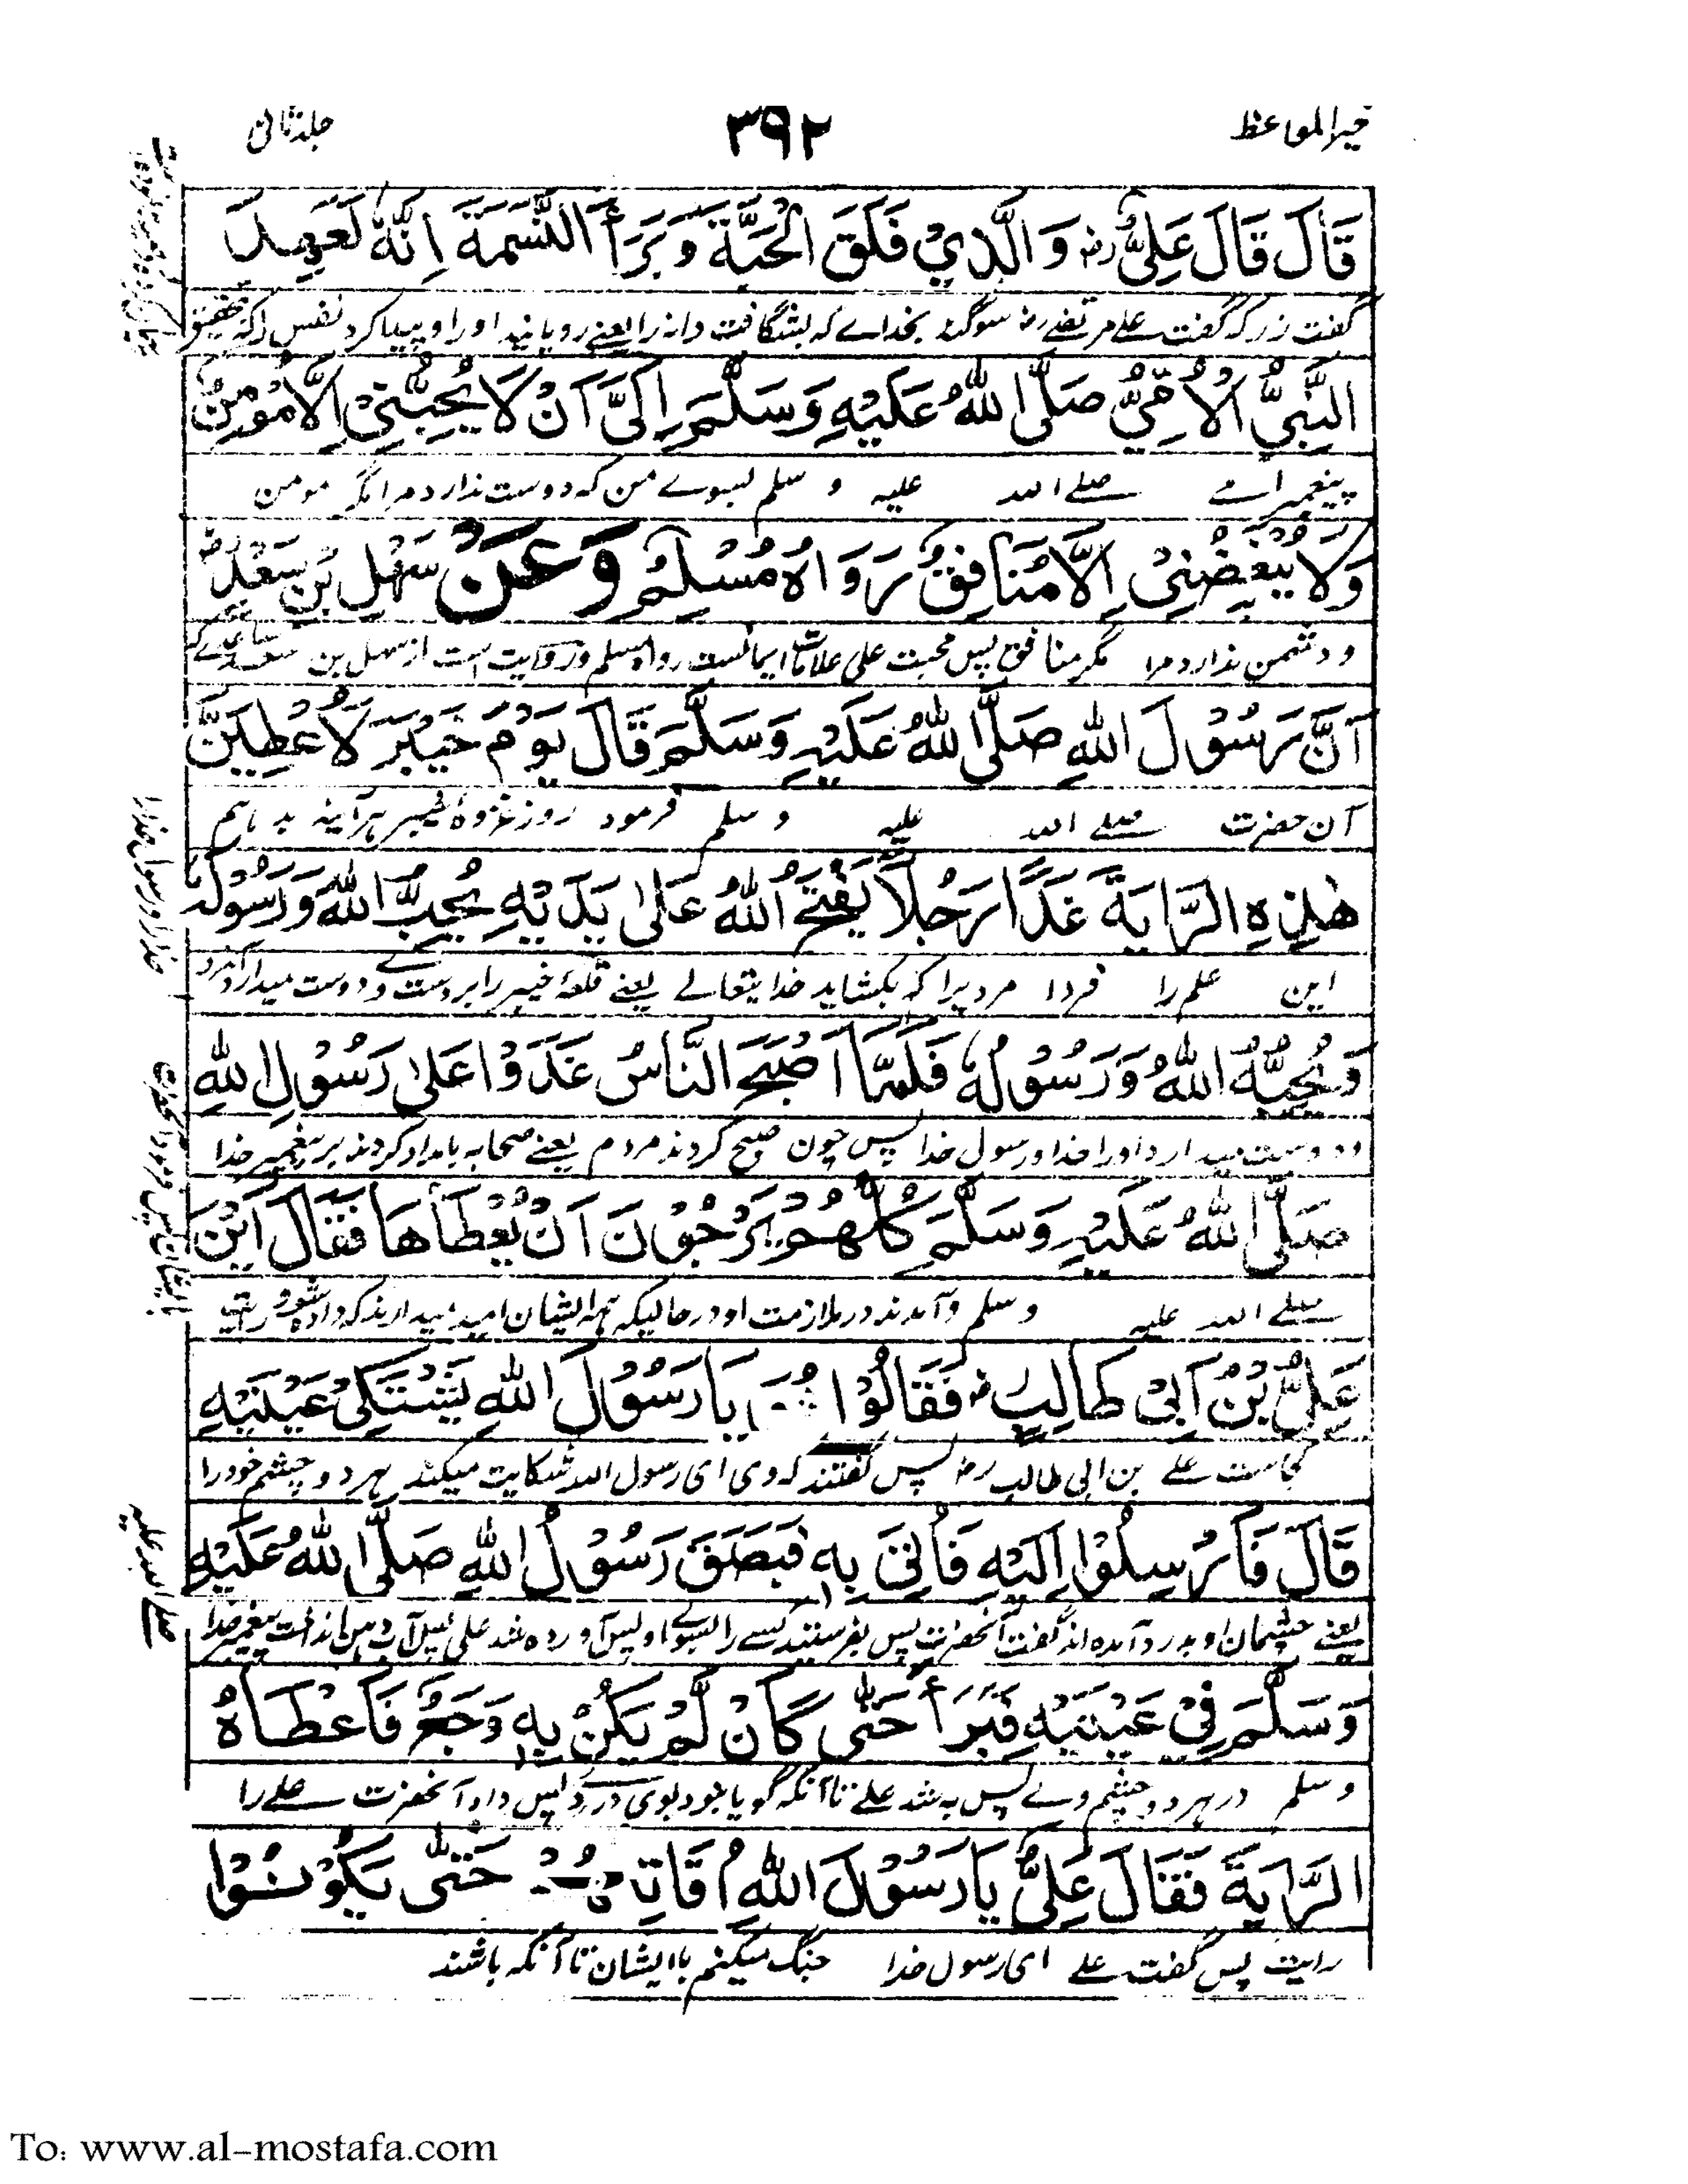 خير المواعظ
٣٩٢
جلد ثانی
قَالَ قَالَ عَلِيٌّ رض وَالَّذِيْ فَلَقَ الْحَبَّةَ وَبَرَأَ النَّسَمَةَ اِنَّهٗ لَعَهِدَ
گفت زر که گفت علے مرتضے رض سوگند بخداے که بشگافت دانه را یعنے رویانید اورا و پیدا کرد نفس را که
النَّبِيُّ الْاُمِّيُّ صَلَّى اللهُ عَلَيْهِ وَسَلَّمَ اِلَيَّ اَنْ لَا يُحِبَّنِيْ اِلَّا مُؤْمِنٌ
پیغمبر امے صلے الله علیه و سلم بسوے من که دوست ندارد مرا مگر مومن
وَلَا يُبْغِضَنِيْ اِلَّا مُنَافِقٌ رَوَاهُ مُسْلِمٌ وَعَنْ سَهْلِ بْنِ سَعْدٍ رض
و دشمن ندارد مرا مگر منافق پس محبت علی علامت ایمانست رواه مسلم و روایت است از سهل بن سعد
اَنَّ رَسُوْلَ اللهِ صَلَّى اللهُ عَلَيْهِ وَسَلَّمَ قَالَ يَوْمَ خَيْبَرَ لَاُعْطِيَنَّ
آن حضرت صلے الله علیه و سلم فرمود روز غزوهٔ خیبر هرآینه بدهم
هٰذِهِ الرَّايَةَ غَدًا رَجُلًا يَفْتَحُ اللهُ عَلٰى يَدَيْهِ يُحِبُّ اللهَ وَرَسُوْلَهٗ
این علم را فردا مردیرا که بکشاید خدایتعالے یعنے قلعهٔ خیبر را بر دست وے دوست میدارد
وَيُحِبُّهُ اللهُ وَرَسُوْلُهٗ فَلَمَّا اَصْبَحَ النَّاسُ غَدَوْا عَلٰى رَسُوْلِ اللهِ
و دوست میدارد اورا خدا و رسول خدا پس چون صبح کردند مردم یعنے صحابه بامداد کردند بر پیغمبر خدا
صَلَّى اللهُ عَلَيْهِ وَسَلَّمَ كُلُّهُمْ يَرْجُوْنَ اَنْ يُعْطَاهَا فَقَالَ اَيْنَ
صلے الله علیه و سلم و آمدند در ملازمت او در حالیکه همه ایشان امید میدارند که داده شود
عَلِيُّ بْنُ اَبِيْ طَالِبٍ رض فَقَالُوْا يَا رَسُوْلَ اللهِ يَشْتَكِيْ عَيْنَيْهِ
کجاست علے بن ابی طالب رض پس گفتند که وی ای رسول الله شکایت میکند هر دو چشم خود را
قَالَ فَاَرْسِلُوْا اِلَيْهِ فَاُتِيَ بِهٖ فَبَصَقَ رَسُوْلُ اللهِ صَلَّى اللهُ عَلَيْهِ
یعنے چشمان او بدرد آمده اند گفت آنحضرت پس بفرستید کسے را بسوے او پس آورده شد علی پس آب دهن انداخت پیغمبر خدا
وَسَلَّمَ فِيْ عَيْنَيْهِ فَبَرَأَ حَتّٰى كَانْ لَّمْ يَكُنْ بِهٖ وَجَعٌ فَاَعْطَاهُ
و سلم در هر دو چشم وے پس به شد علے تا آنکه گویا نبود بوی درد پس داد آنحضرت علے را
الرَّايَةَ فَقَالَ عَلِيٌّ يَا رَسُوْلَ اللهِ اُقَاتِلُهُمْ حَتّٰى يَكُوْنُوْا
رایت پس گفت علے ای رسول خدا جنگ میکنم با ایشان تا آنکه باشند
خدا و رسول خدا را
صلے الله علیه
To: www.al-mostafa.com